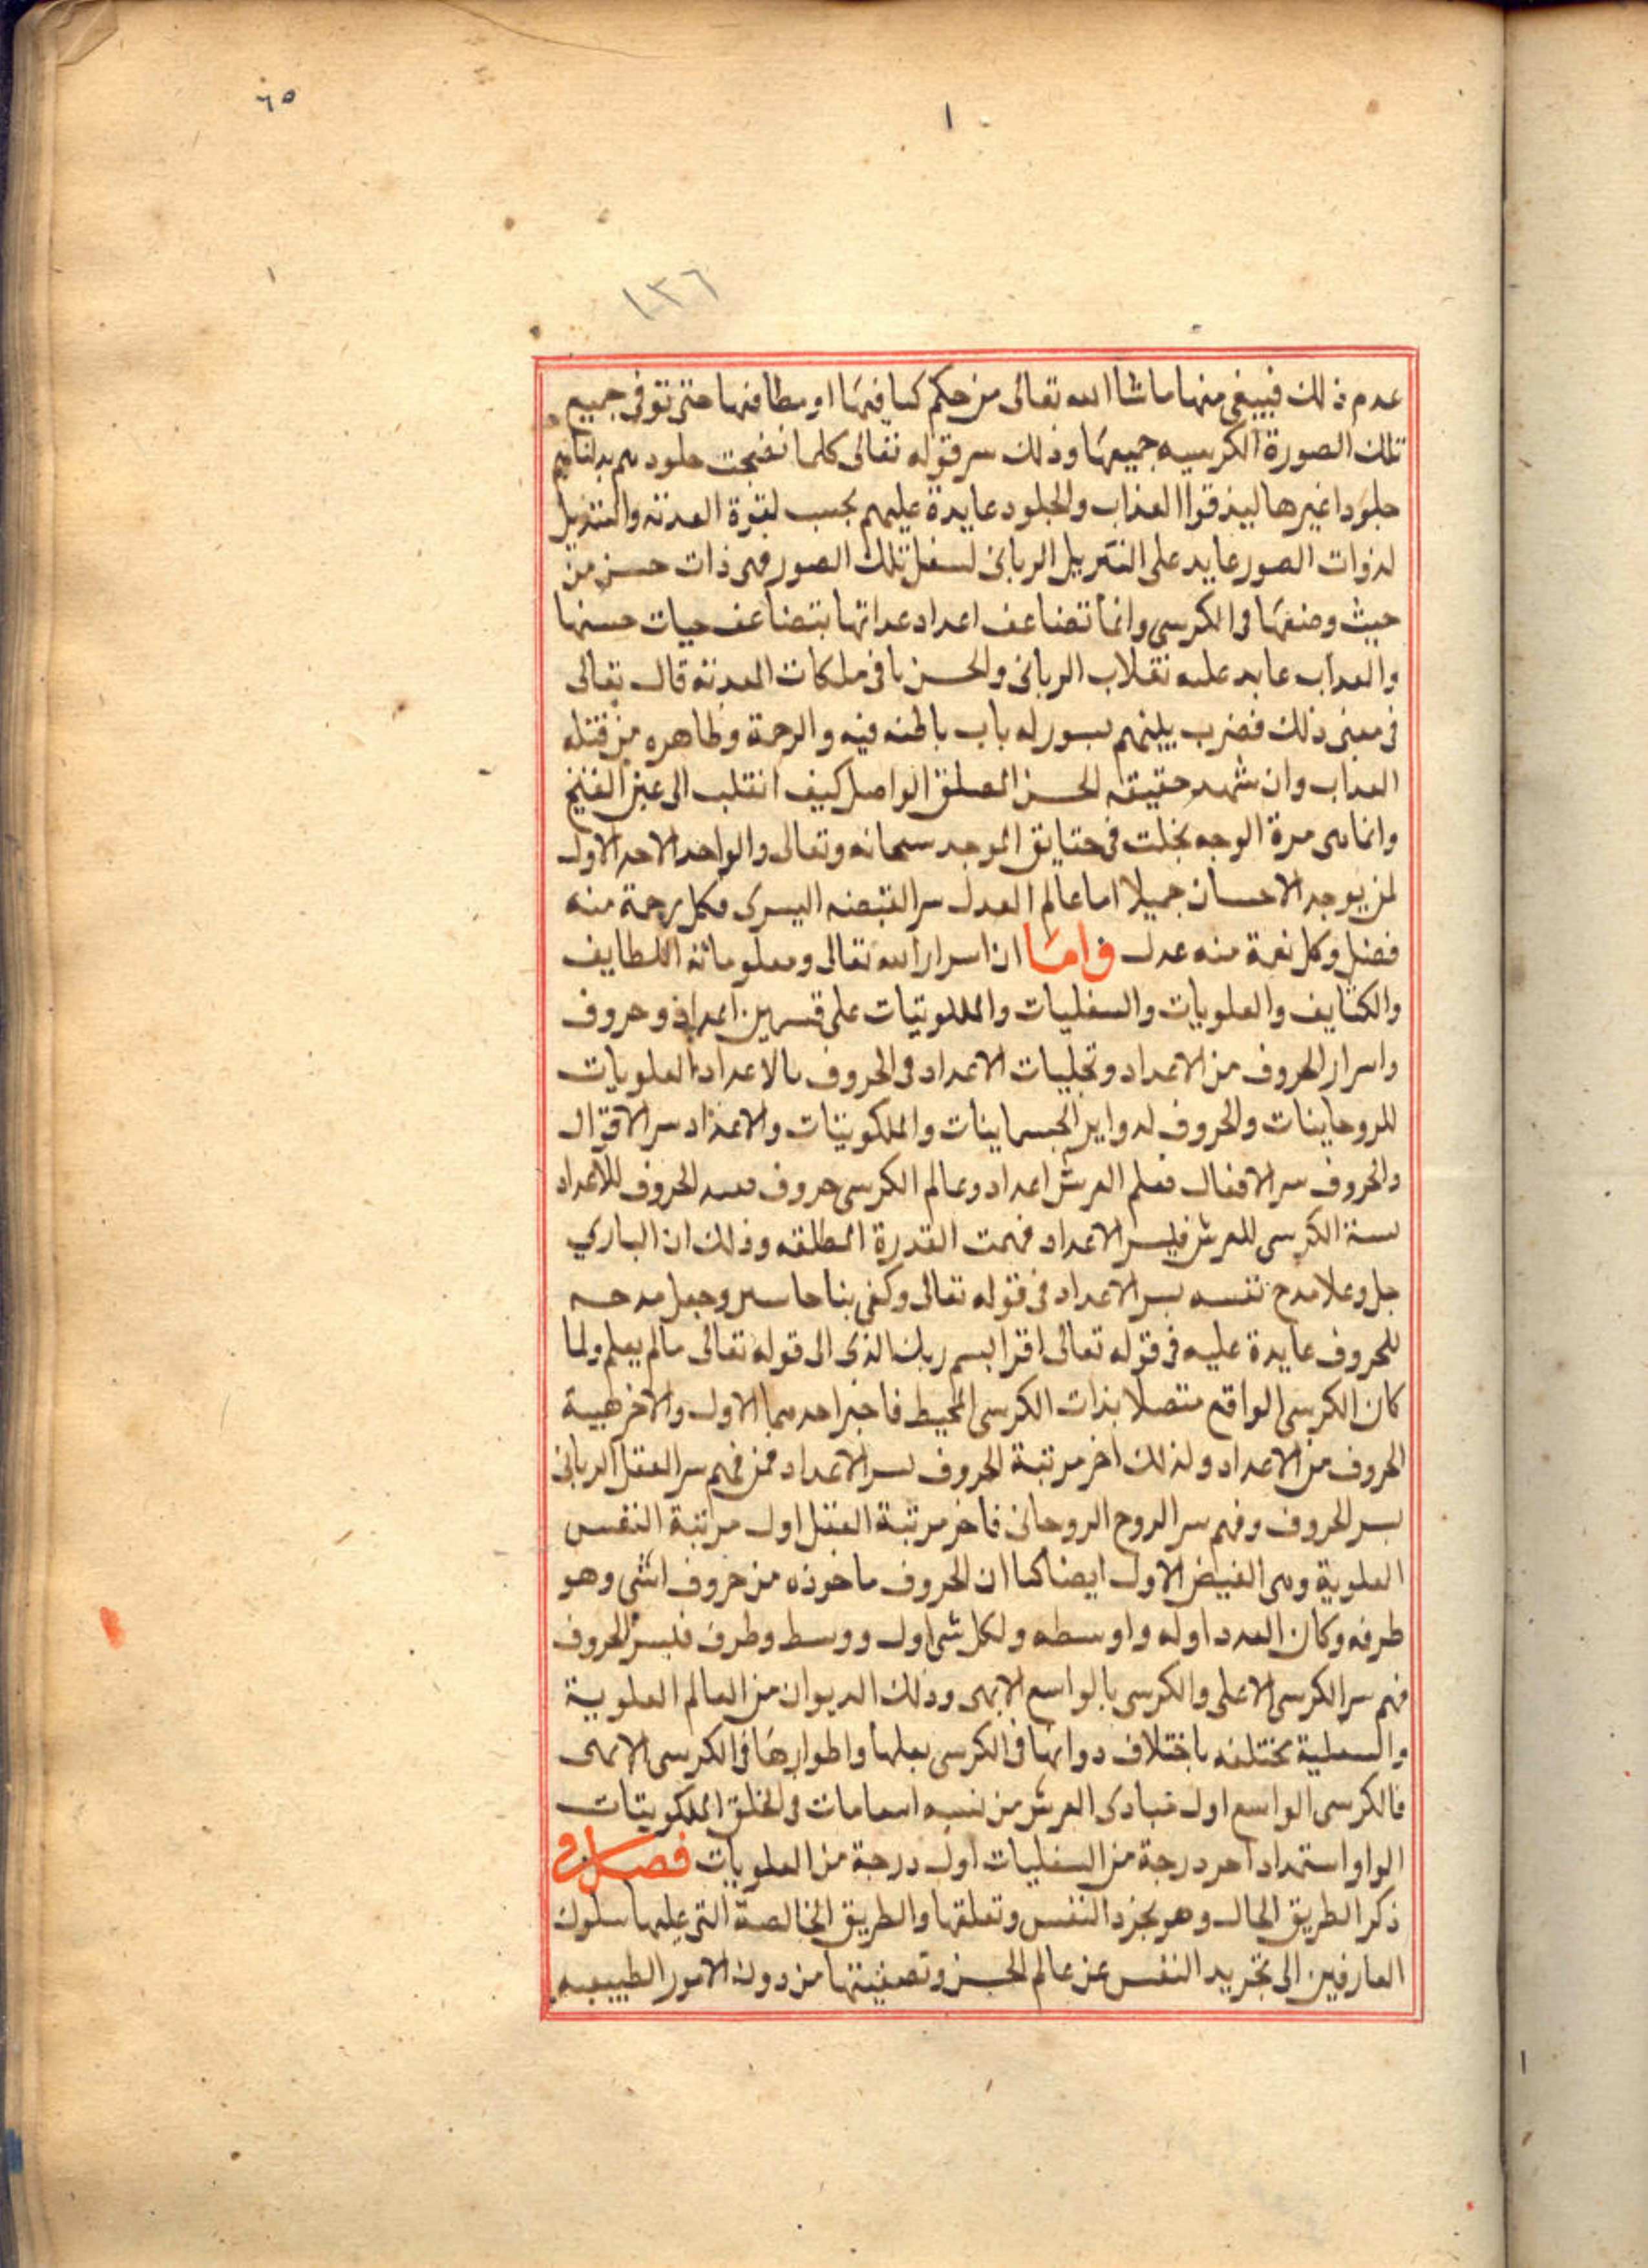 ٦٥
١
١٣٦
عدم ذلك فيبقى منها ماشا الله تعالى من حكم كسافتها او مطافتها حتى توفى جميع
تلك الصورة الكرسيه جميعها وذلك سر قوله تعالى كلما نضجت جلودهم بدلناهم
جلودا غيرها ليذقوا العذاب والجلود عايدة عليهم بحسب لقوة العدنه والتنزيل
لذوات الصور عايد على التنزيل الربانى لسفل تلك الصور فهى ذات حسن من
حيث وضعها فى الكرسى وانما تضاعف اعداد عداتها بتضاعف حيات حسنها
والعداب عايد عليه تقلاب الربانى والحسن باقى ملكات المعدنه قال تعالى
فى معنى ذلك فضرب بينهم بسور له باب باطنه فيه والرحمة وظاهره من قبله
العداب وان شهد حقيقه الحسن المطلق الواصل كيف انقلب الى عين القبيح
وانما هى مرة الوجه تجلت فى حقايق الموجد سبحانه وتعالى والواحد الاحد الاول
لمن يوجد الاحسان جميلا اما عالم العدل سر القبضه اليسرى فكل رحمة منه
فضل وكل نعمة منه عدل واما ان اسرار الله تعالى ومعلوماته اللطايف
والكثايف والعلويات والسفليات والملكوتيات على قسمين اعداد وحروف
واسرار الحروف من الاعداد وتجليات الاعداد فى الحروف بالاعداد العلويات
للروحاينات والحروف لدواير الجسماينات والملكوتيات والاعداد سر الاقوال
والحروف سر الافعال فعلم العرش اعداد وعالم الكرسى حروف فنسبه الحروف للاعداد
نسبة الكرسى للعرش فبسر الاعداد فهمت القدرة المطلقه وذلك ان الباري
جل وعلا مدح نفسه بسر الاعداد فى قوله تعالى وكفى بنا حاسبين وجعل مدحه
للحروف عايدة عليه فى قوله تعالى اقرا بسم ربك الذى الى قوله تعالى مالم يعلم ولما
كان الكرسى الواقع متصلا بذات الكرسى المحيط فاخبر احدهما الاول والاخر هيبة
الحروف من الاعداد ولذلك اخر مرتبة الحروف بسر الاعداد فمن فهم سر العقل الربانى
بسر الحروف وفهم سر الروح الروحانى فاخر مرتبة العقل اول مرتبة النفس
العلوية وهى الفيض الاول ايضا كما ان الحروف ماخوذه من حروف اشى وهو
طرفه وكان العدد اوله واوسطه ولكل شى اول ووسط وطرف فبسر الحروف
فهم سر الكرسى الاعلى والكرسى بالواسع الابهى وذلك الديوان من العالم العلوية
والسفلية مختلفه باختلاف دواتها فى الكرسى بعلها واطوارها فى الكرسى الابهى
فالكرسى الواسع اول مبادى العرش من نسبه فى الخلق الملكوتيات
الواو استمداد اخر درجة من السفليات اول درجة من العلويات فصل فى
ذكر الطريق الحال وهو تجرد النفس وتعلقها والطريق الخالصة التى عليها سلوك
العارفين الى تجريد النفس عن عالم الحسن وتصفيتها من دون الامور الطبيعيه